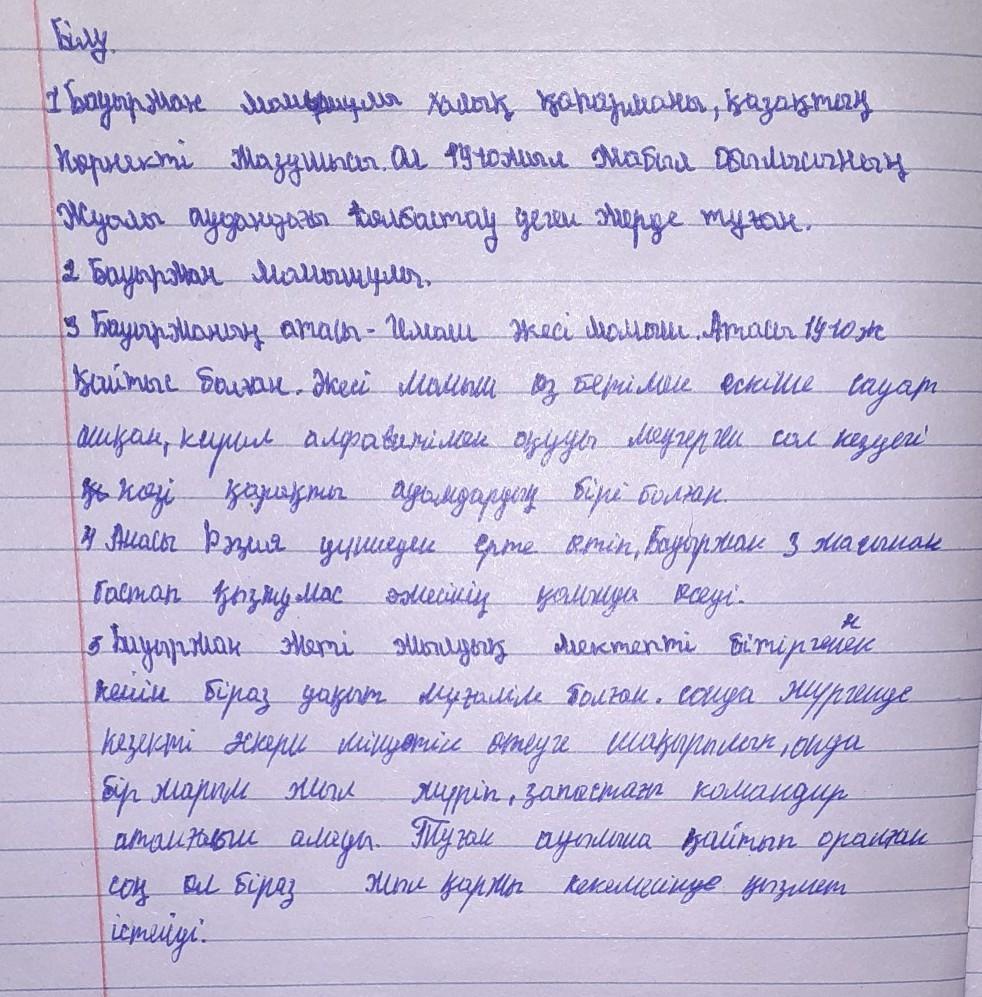 Білу.
1 Бауыржан Момышұлы халық қаһарманы, қазақтың
көрнекті жазушысы. Ол 1910жыл Жамбыл облысының
Жуалы ауданздағы Көлбастау деген жерде туған.
2 Бауыржан Момышұлы.
3 Бауыржанның атасы - Имаш әкесі Момыш. Атасы 1910ж
қайтыс болған. Әкесі Момыш өз бетімен ескіше сауат
ашқан, кирил алфавитімен оқуды меңгерген сол кездегі
көзі қарақты адамдардың бірі болған.
4 Анасы Рәзия дүниеден ерте өтіп, Бауыржан 3 жасынан
бастап қызтумас әжесінің қолында өседі.
5 Бауыржан жеті жылдық мектепті бітіргеннен
кейін біраз уақыт мұғалім болған. сонда жүргенде
кезекті әскери міндетін өтеуге шақырылып, онда
бір жарым жыл жүріп, запастағы командир
атанғын алады. Туған ауылына қайтып оралған
соң ол біраз жыл қаржы мекемесінде қызмет
істейді.